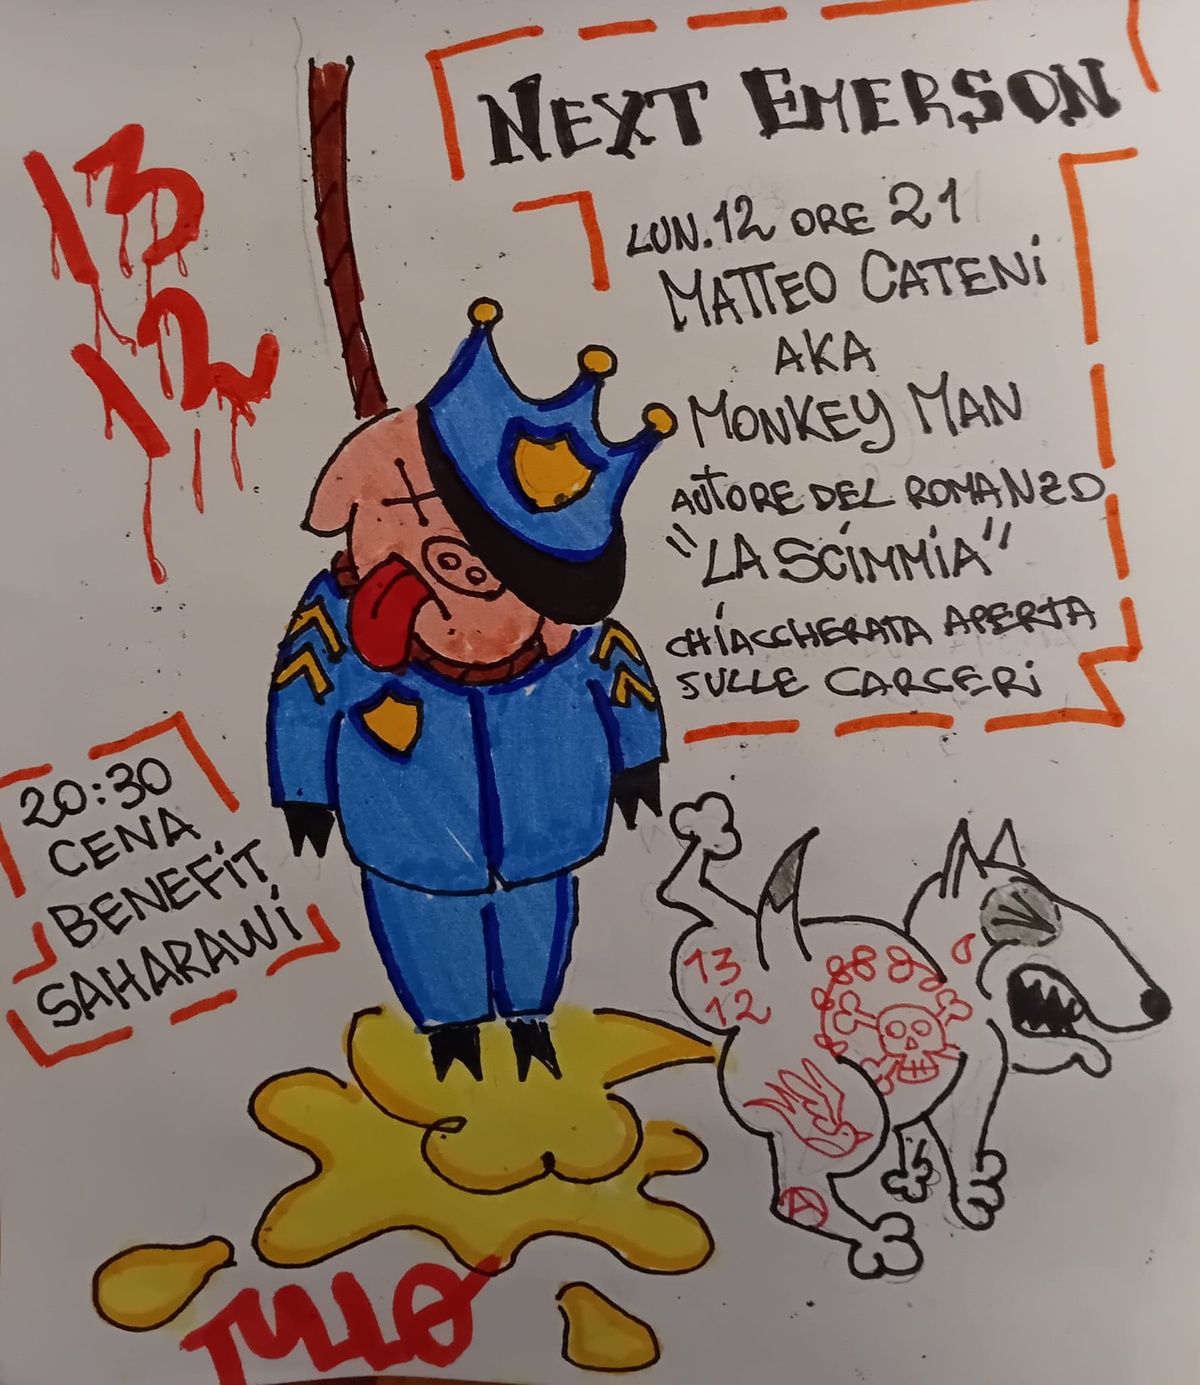 NEXT EMERSON
LUN. 12 ORE 21
MATTEO CATENI
AKA
MONKEY MAN
AUTORE DEL ROMANZO
"LA SCIMMIA"
CHIACCHERATA APERTA
SULLE CARCERI
13
12
20:30
CENA
BENEFIT
SAHARAWI
13
12
TULLO